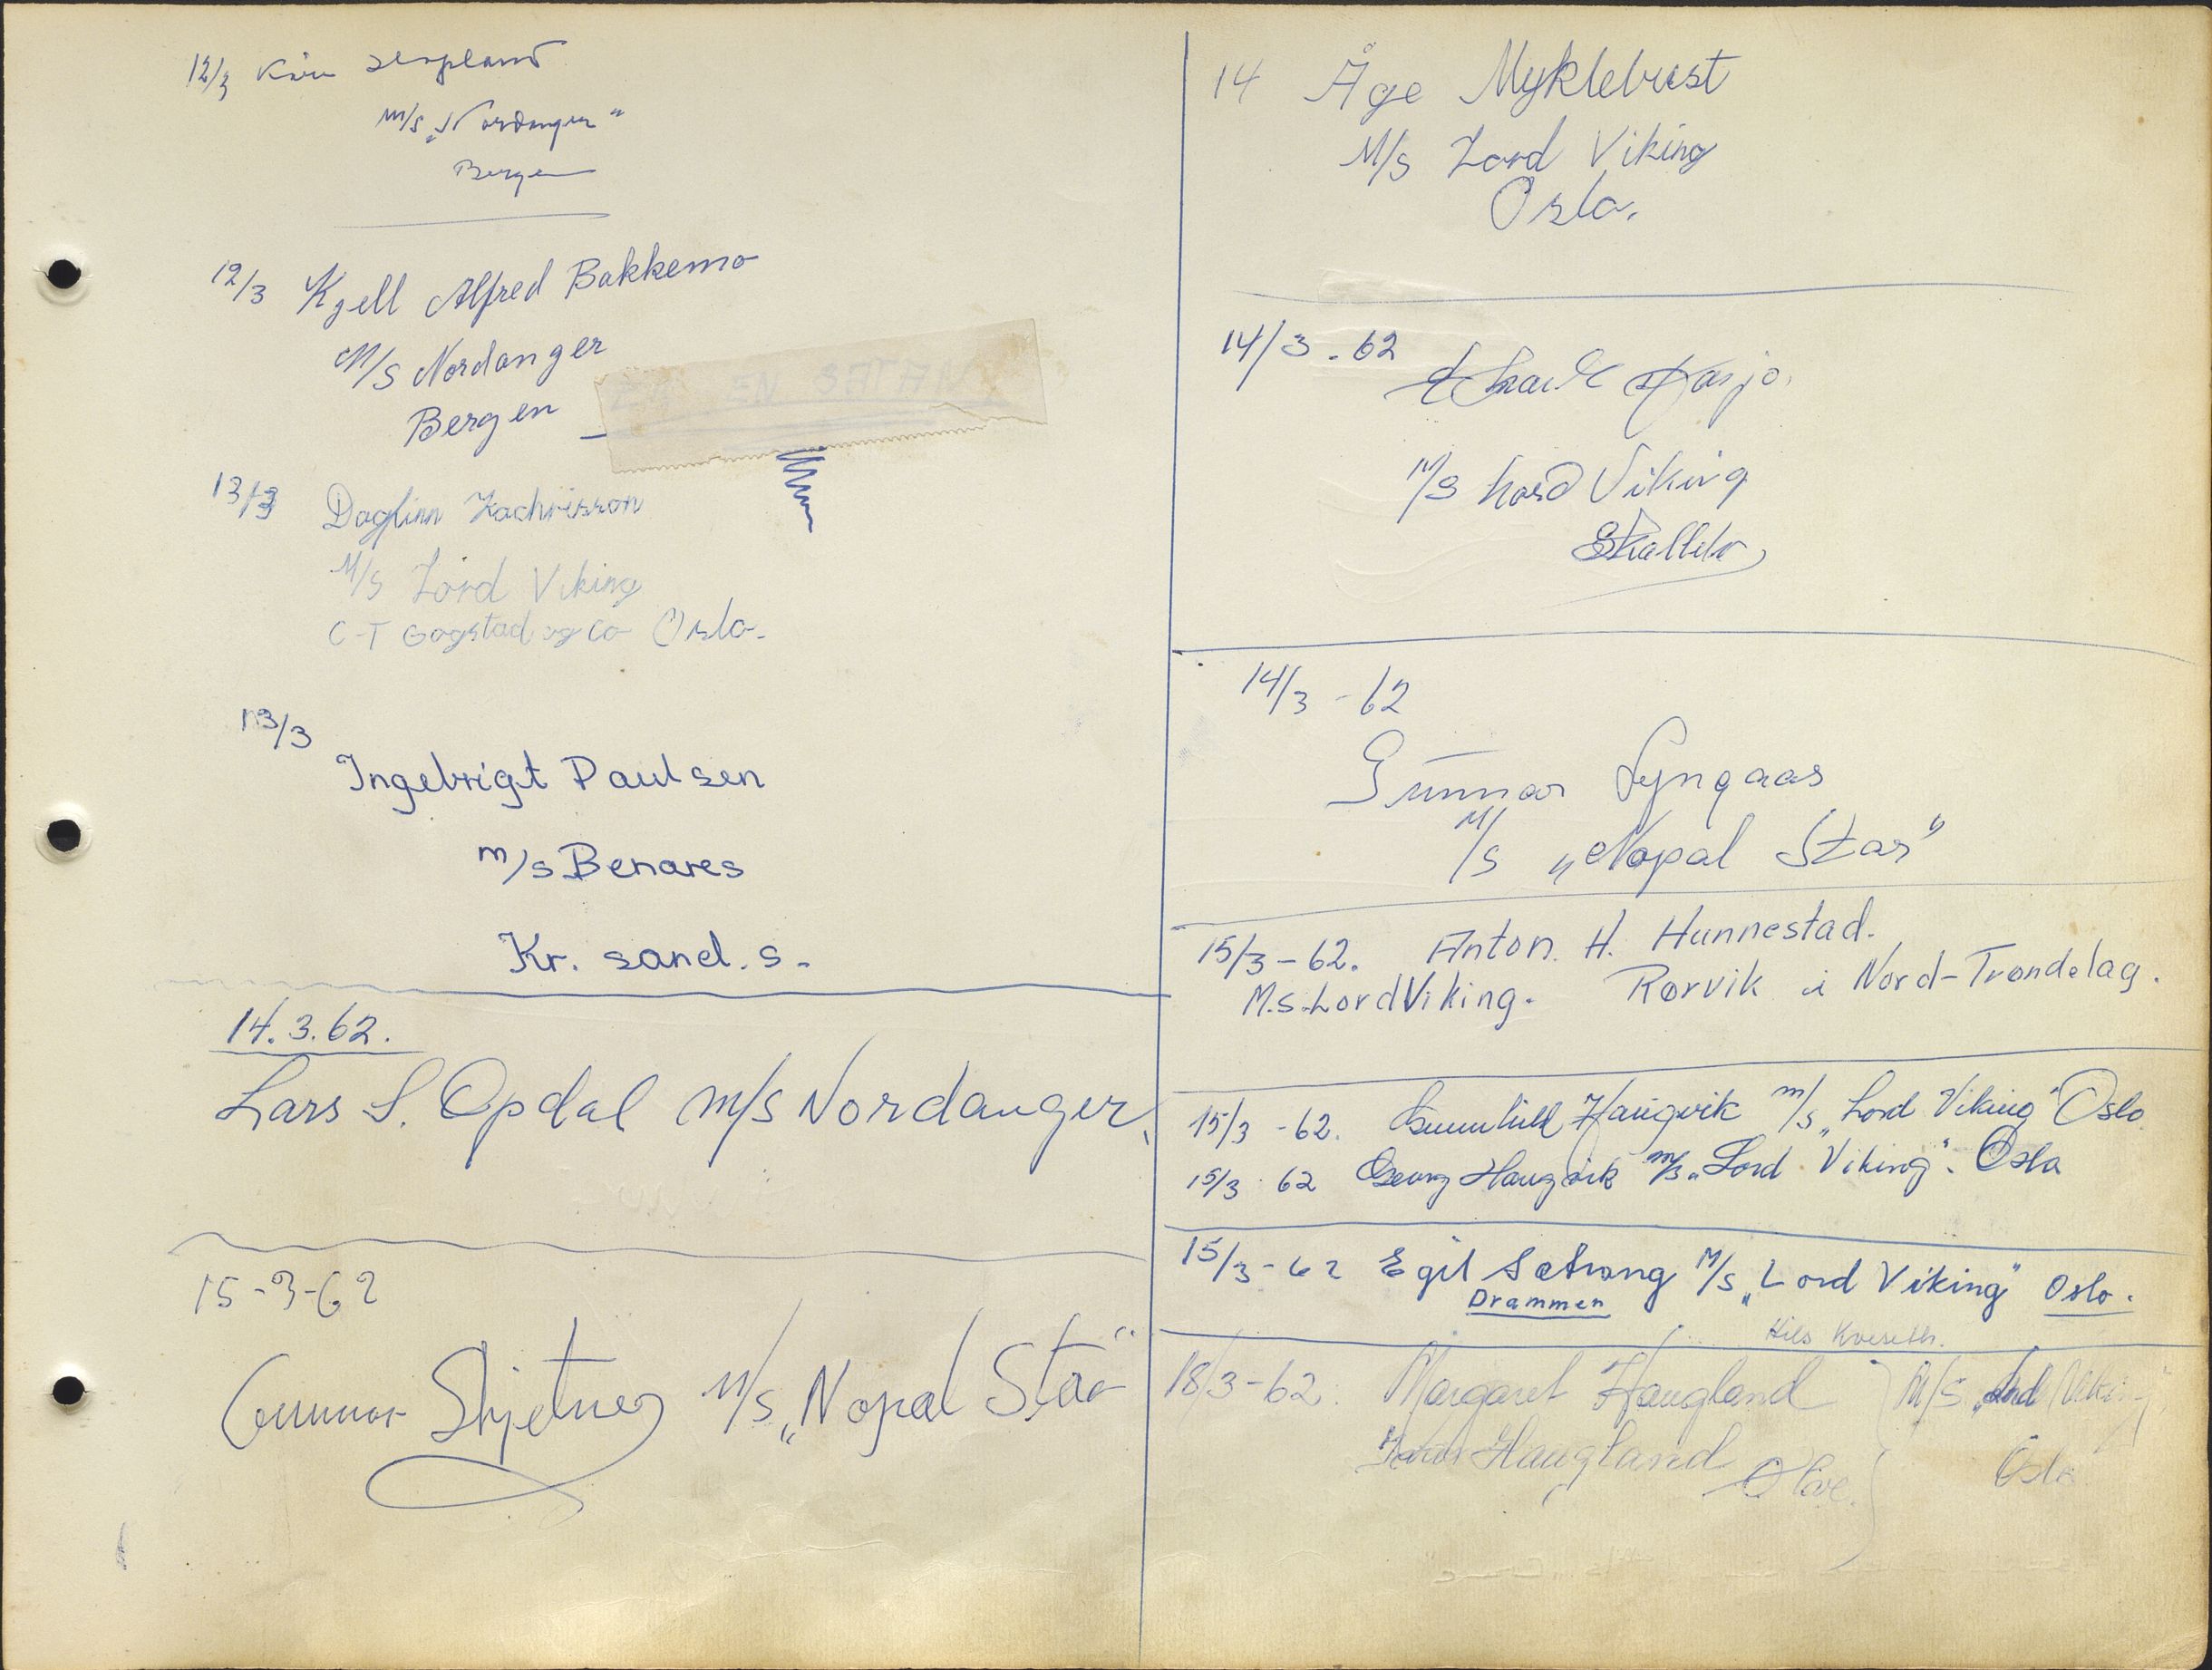 12/3
m/s „Nordanger"
Bergen
12/3 Kjell Alfred Bakkemo
M/S Nordanger
Bergen
13/3 Dagfinn Zachrisson
M/S Lord Viking
C-T Gogstad og Co Oslo.
13/3
Ingebrigt Paulsen
m/s Benares
Kr. sand. s.
14.3.62.
Lars S. Opdal m/s Nordanger.
15-3-62
Gunnar m/s „Nopal Star"
14 Åge Myklebust
M/S Lord Viking
Oslo.
14/3 - 62
M/S Lord Viking
14/3 - 62
Gunnar Lyngaas
M/S „Nopal Star"
15/3 - 62. Anton. H. Hunnestad.
M.S. Lord Viking. Rørvik i Nord-Trøndelag.
15/3 - 62. Gunnhild Haugvik m/s „Lord Viking" Oslo
15/3 62 Georg Haugvik m/s „Lord Viking". Oslo
15/3 - 62 Egil Sætrang M/S „Lord Viking" Oslo.
Drammen
18/3 - 62. Margaret Haugland M/S „Lord Viking"
Haugland Oslo